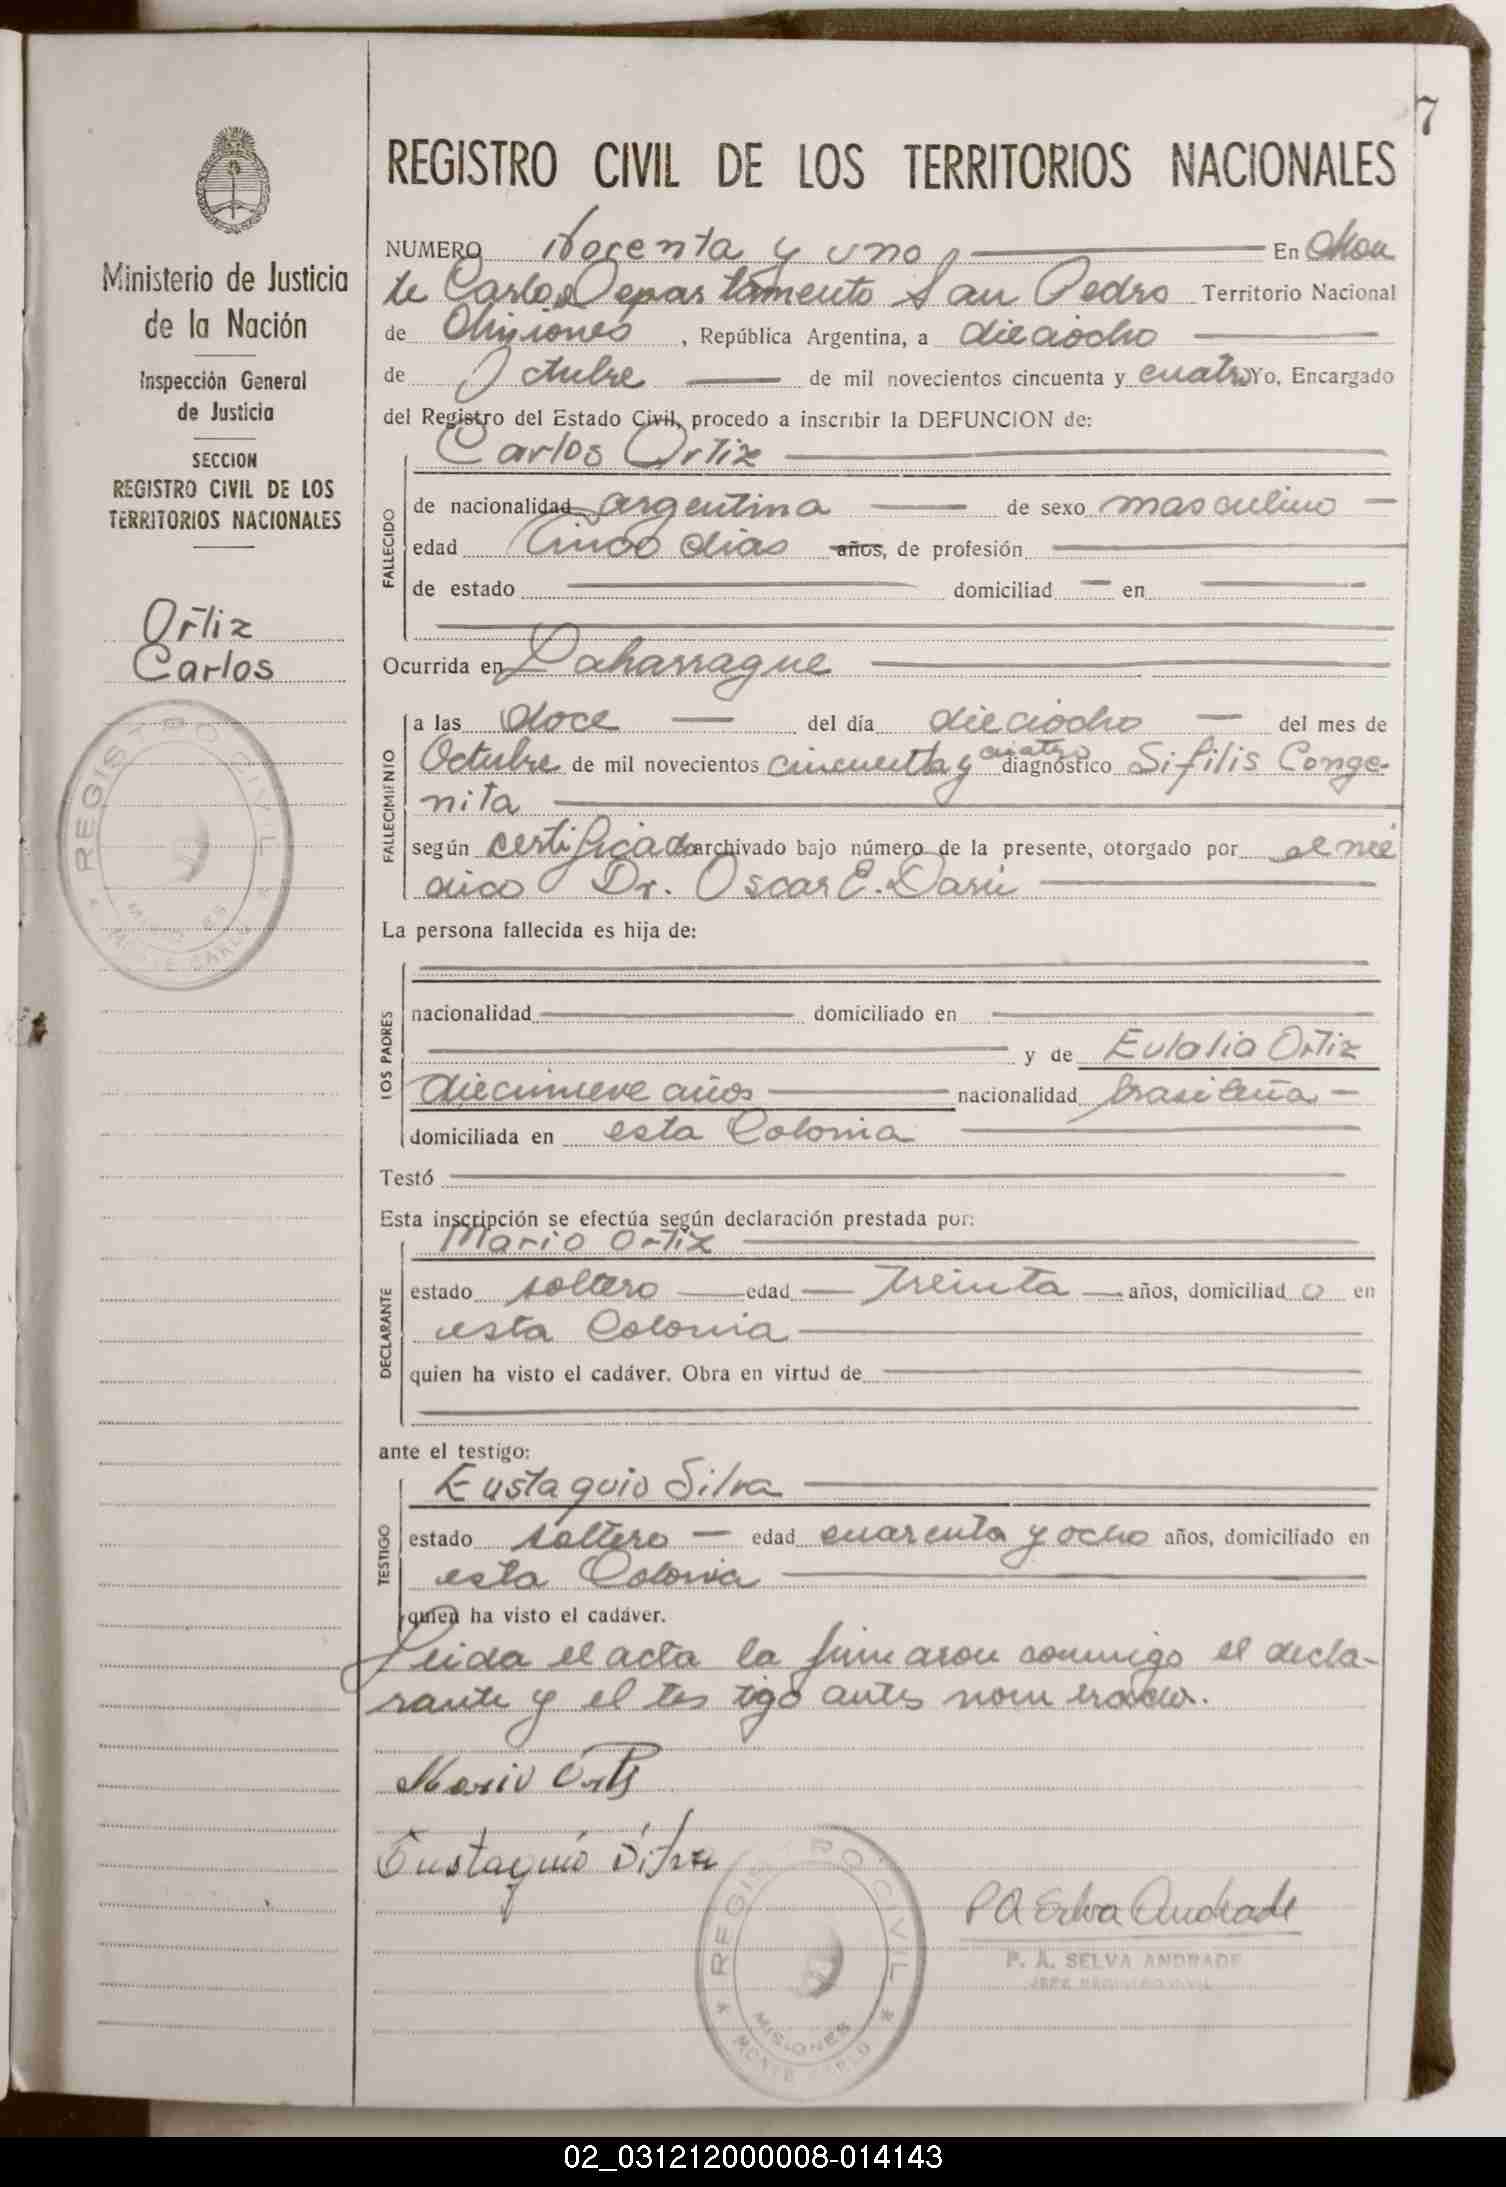 7
Ministerio de Justicia
de la Nación
Inspección General
de Justicia
SECCION
REGISTRO CIVIL DE LOS
TERRITORIOS NACIONALES
Ortiz
Carlos
REGISTRO CIVIL
MISIONES
MONTE CARLO
REGISTRO CIVIL DE LOS TERRITORIOS NACIONALES
NUMERO Nocenta y uno En Mon
te Carlo Departamento San Pedro Territorio Nacional
de Misiones, República Argentina, a dieciocho
de Octubre de mil novecientos cincuenta y cuatro Yo, Encargado
del Registro del Estado Civil, procedo a inscribir la DEFUNCION de:
Carlos Ortiz
FALLECIDO
de nacionalidad argentina de sexo masculino
edad Cinco dias años, de profesión
de estado domiciliad en
Ocurrida en Laharrague
FALLECIMIENTO
a las doce del día dieciocho del mes de
Octubre de mil novecientos cincuenta y cuatro diagnóstico Sifilis Conge-
nita
según certificado archivado bajo número de la presente, otorgado por el mé
dico Dr. Oscar E. Darú
La persona fallecida es hija de:
LOS PADRES
nacionalidad domiciliado en
y de Eulalia Ortiz
diecinueve años nacionalidad brasileña
domiciliada en esta Colonia
Testó
Esta inscripción se efectúa según declaración prestada por:
Mario Ortiz
DECLARANTE
estado soltero edad treinta años, domiciliad o en
esta Colonia
quien ha visto el cadáver. Obra en virtud de
ante el testigo:
Eustaquio Silva
TESTIGO
estado soltero edad cuarenta y ocho años, domiciliado en
esta Colonia
quien ha visto el cadáver.
Leida el acta la firmaron conmigo el decla-
rante y el testigo antes nombrados.
Mario Ortiz
Eustaquio Silva
REGISTRO CIVIL
MISIONES
MONTE CARLO
P A Selva Andrade
P. A. SELVA ANDRADE
JEFE REGISTRO CIVIL
02_031212000008-014143